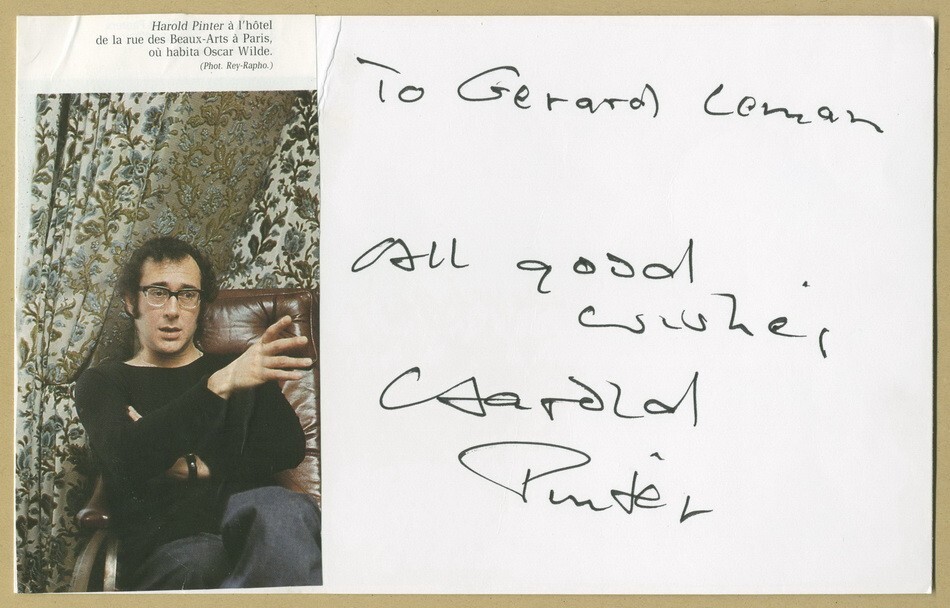 Harold Pinter à l'hôtel
de la rue des Beaux-Arts à Paris,
où habita Oscar Wilde.
(Phot. Rey-Rapho.)
To Gerard Leman
All good
wishes,
Harold
Pinter